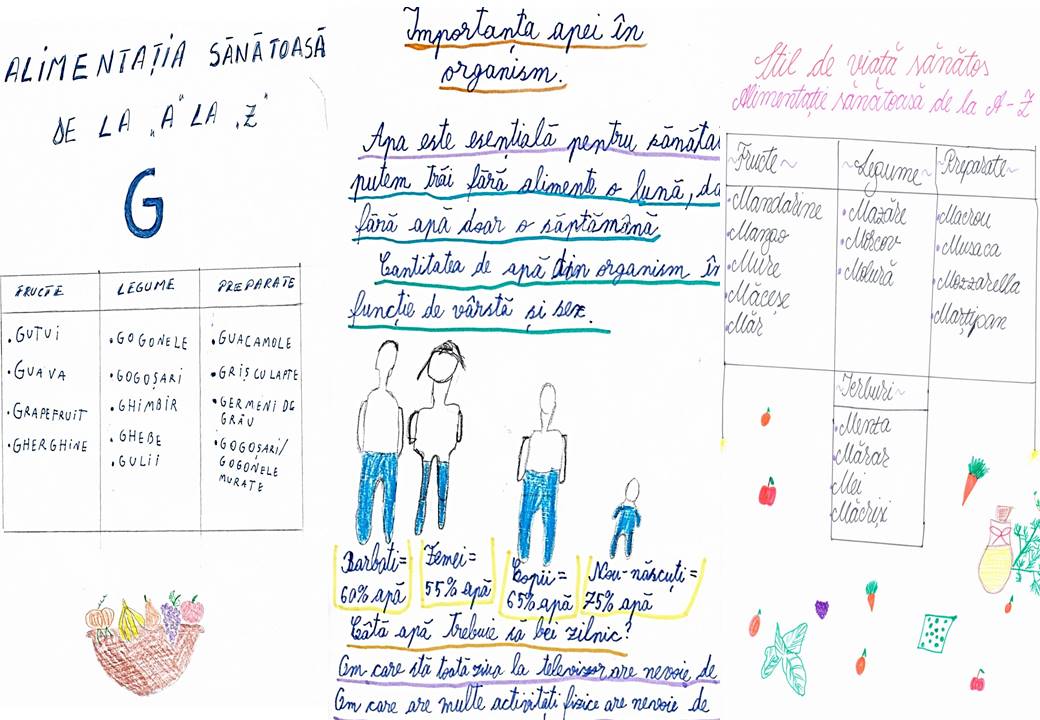 ALIMENTAȚIA SĂNĂTOASĂ
DE LA „A" LA „Z"
G
FRUCTE
LEGUME
PREPARATE
•GUTUI
•GUAVA
•GRAPEFRUIT
•GHERGHINE
•GOGONELE
•GOGOȘARI
•GHIMBIR
•GHEBE
•GULII
•GUACAMOLE
•GRIȘ CU LAPTE
•GERMENI DE
GRÂU
•GOGOȘARI/
GOGONELE
MURATE
Importanța apei în
organism.
Apa este esențială pentru sănătat
putem trăi fără alimente o lună, da
fără apă doar o săptămână
Cantitatea de apă din organism în
funcție de vârstă și sex.
Barbati=
60% apă
Femei=
55% apă
Copii=
65% apă
Nou-născuți=
75% apă
Câtă apă trebuie să bei zilnic?
Om care stă toată ziua la televizor are nevoie de
Om care are multe activități fizice are nevoie de
Stil de viață sănătos
Alimentație sănătoasă de la A-Z
~Fructe~
~Legume~
~Preparate~
•Mandarine
•Mango
•Mure
•Măceșe
•Măr
•Mazăre
•Morcov
•Molură
•Macrou
•Musaca
•Mozzarella
•Marțipan
~Ierburi~
•Menta
•Mărar
•Mei
•Măcriș